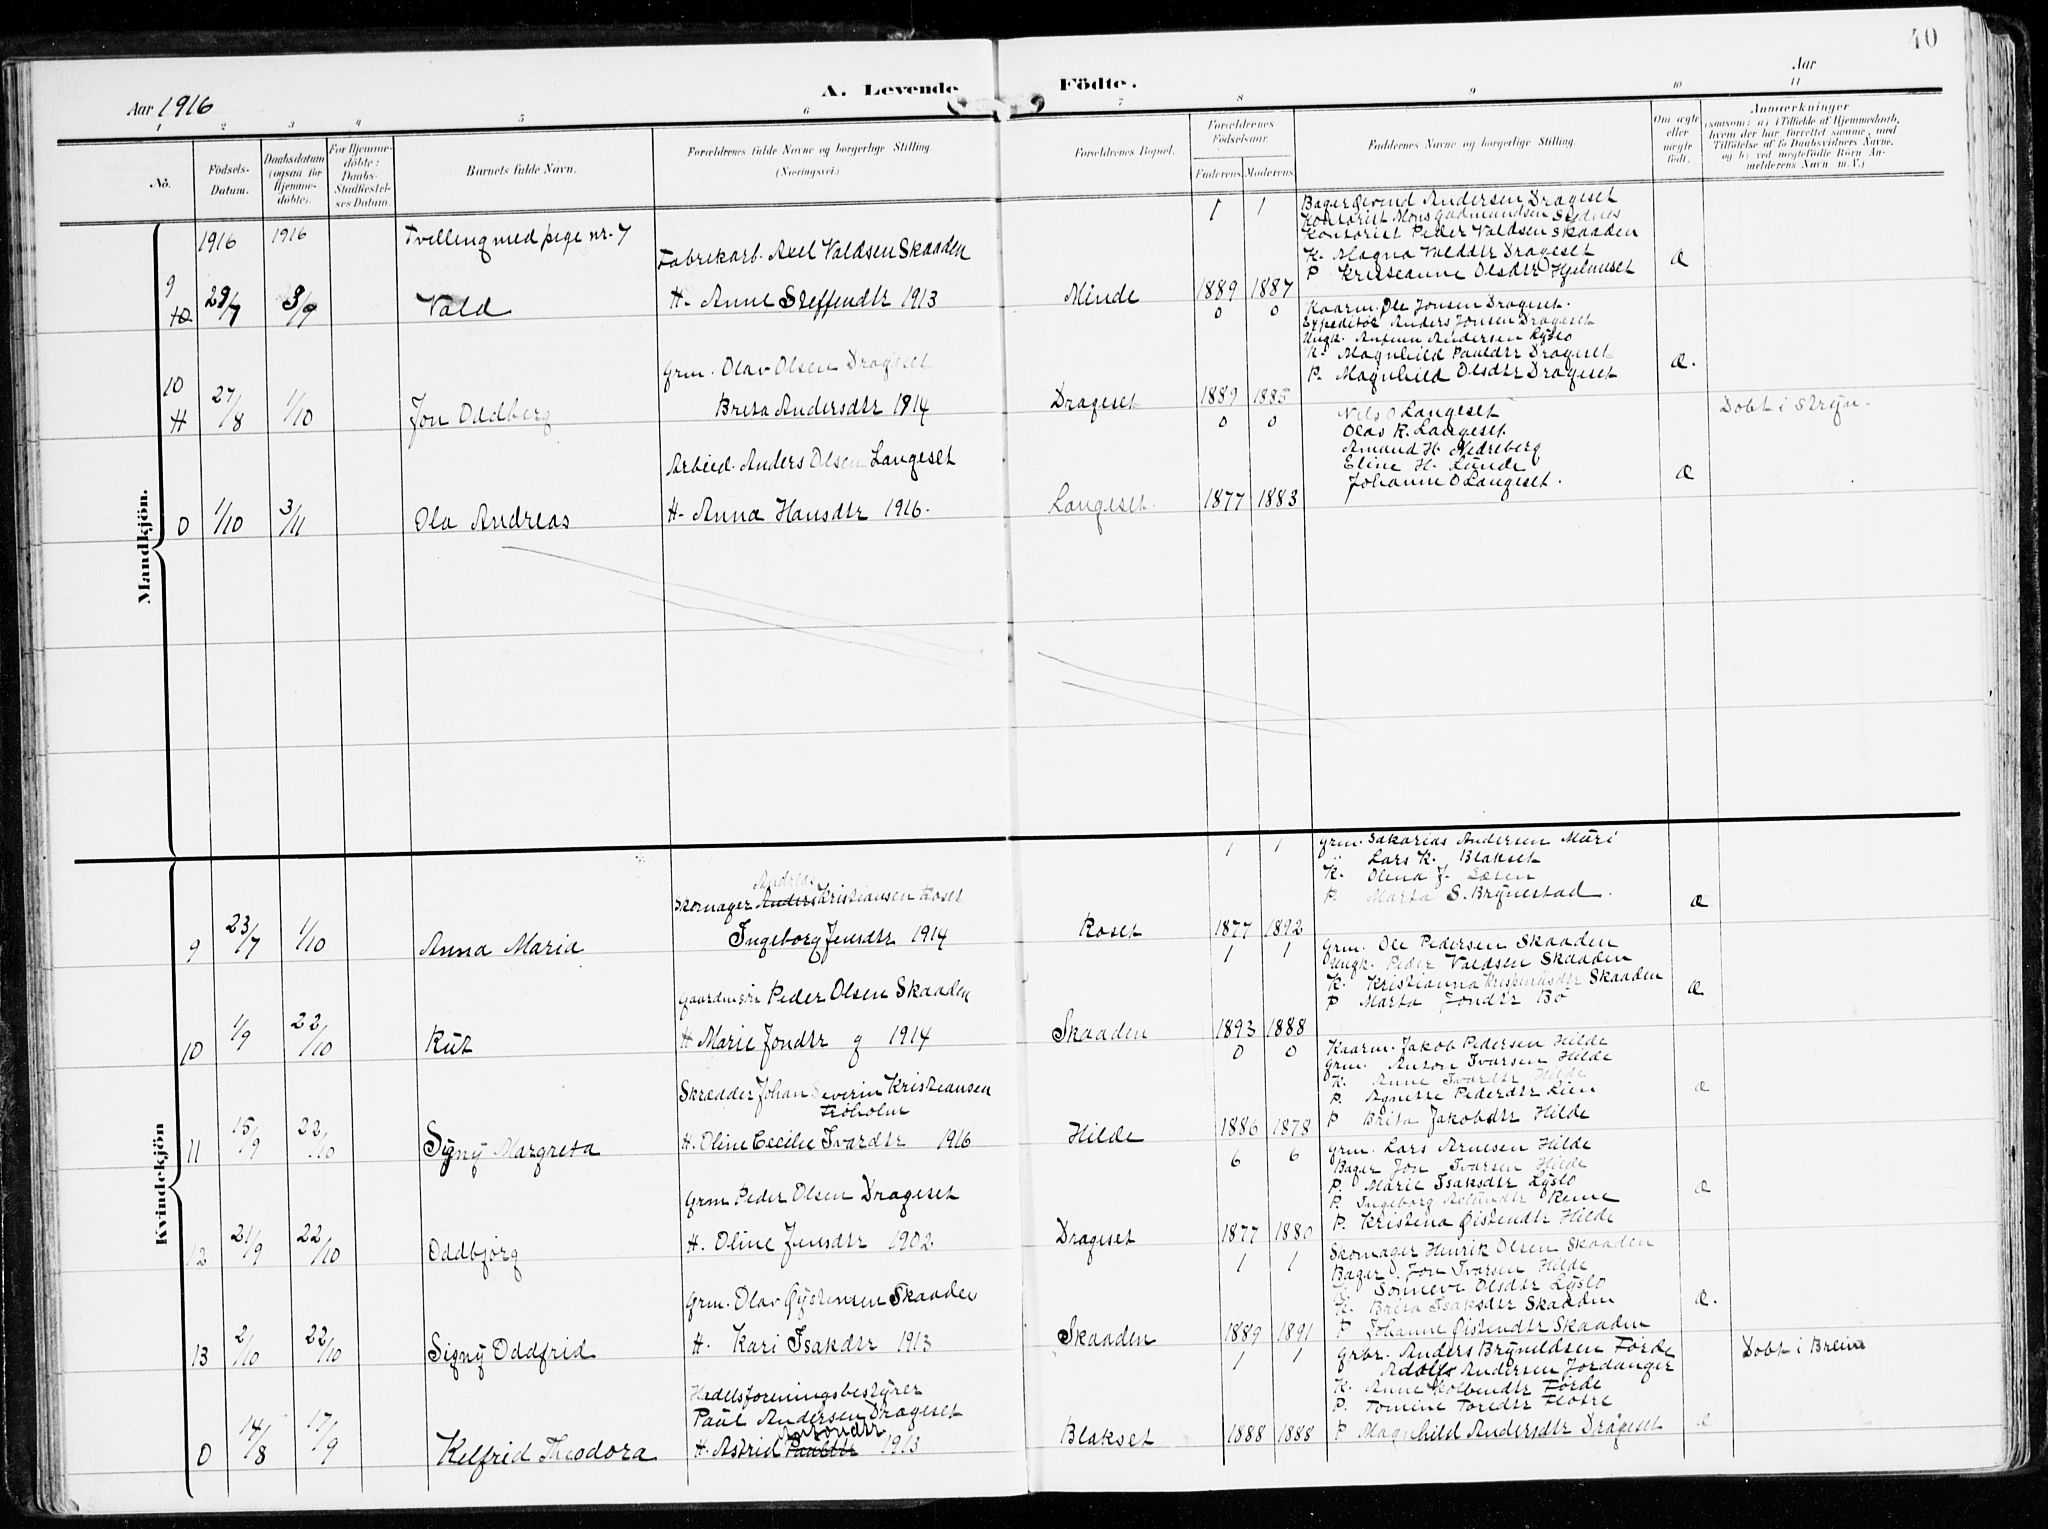 40
Aar 1916
A. Levende
Födte.
Aar
1 2 3 4 5 6 7 8 9 10 11
No.
Födsels-Datum.
Daabsdatum (ogsaa for Hjemme-döbte).
For Hjemme-döbte: Daabs-Stadfæstel-ses Datum.
Barnets fulde Navn.
Forældrenes fulde Navne og borgerlige Stilling. (Næringsvei.)
Forældrenes Bopæl.
Forældrenes Födselsaar.
Faderens Moderens
Faddernes Navne og borgerlige Stilling.
Om ægte eller uægte födt.
Anmærkninger
(saasom: a) i Tilfælde af Hjemmedaab,
hvem der har forrettet samme, med
Tilföielse af to Daabsvidners Navne,
og b) ved uægtefödte Börn An-
melderens Navn m. V.)
Mandkjön.
1916 1916 Tvilling med pige nr. 7
Fabrikarb. Axel Valdsen Skaaden
9 29/7 3/9 Vald
H. Anne Steffendtr 1913
Minde 1889 1887
1 1
Bager Øivind Andersen Drageset
Kontorist Mons Gudmundsen Sydnes
Kontorist Peder Valdsen Skaaden
K. Magna Valddtr Drageset
P Kristianne Olsdtr Hjelmeset
Æ
Grm. Olav Olsen Drageset
10 27/8 1/10 Jon Oddberg
Brita Andersdtr 1914
Drageset 1889 1885
0 0
Kaarm. Ole Jonsen Drageset.
Expeditör Anders Jonsen Drageset
Ungk. Anfinn Andersen Lyslo
K. Magnhild Pauldtr Drageset
P. Magnhild Olsdtr Drageset
Æ.
Arbeid. Anders Olsen Langeset
0 1/10 3/11 Ola Andreas
H. Anna Hansdtr 1916.
Langeset. 1877 1883
0 0
Nils O Langeset
Olas R. Langeset.
Amund H. Nedreberg
Eline H. Lunde
Johanne O Langeset.
Æ
Döbt i Stryn.
Kvindekjön
Skomager Anders Andreas Kristiansen Roset
9 23/7 1/10 Anna Maria
Ingeborg Jensdtr 1914
Roset 1877 1892
1 1
Grm. Sakarias Andersen Muri
" Lars K. Blakset
K. Olina J.
P Marta S. Brynestad.
Æ
Gaardm.sön Peder Olsen Skaaden
10 1/9 22/10 Rut
H Marie Jondtr g 1914
Skaaden 1893 1888
1 1
Grm. Ole Pedersen Skaaden
Ungk. Peder Valdsen Skaaden
K. Kristianna Kristensdtr Skaaden
P Marta Jondtr Bö
Æ
Skrædder Johan Severin Kristiansen
Fröholm
11 15/9 22/10 Signy Margreta
H. Oline Cecilie Ivardtr 1916
Hilde 1886 1878
0 0
Kaarm. Jakob Pedersen Hilde
Grm. Anton Ivarsen Hilde
K. Anne Ivardtr Hilde
P. Agnette Pederdtr Lien
P Brita Jakobdtr Hilde
Æ
Grm Peder Olsen Drageset
12 21/9 22/10 Oddbjörg
H. Oline Jensdtr 1902
Drageset 1877 1880
6 6
Grm. Lars Arnesen Hilde
Bager Jon Ivarsen Hilde
P. Marie Isaksdtr Lyslo
P. Ingeborg Remme
P. Kristina Øistendtr Hilde
Æ
Grm. Olav Øystensen Skaaden
13 2/10 22/10 Signy Oddfrid
H. Kari Isakdtr 1913
Skaaden 1889 1891
1 1
Skomager Henrik Olsen Skaaden
Bager Jon Ivarsen Hilde
K. Sonneve Olsdtr Lyslo
K. Brita Isaksdtr Skaaden
P Johanne Øistendtr Skaaden
Æ.
Handelsforeningsbestyrer
Paul Andersen Drageset
0 14/8 17/9 Kelfrid Theodora
H. Astrid Pauldtr Antondtr 1913
Blakset 1888 1888
1 1
Grbr. Anders Brynildsen Förde
Adolfs Andersen Jordanger
K. Anne Kolbendtr Förde
P. Tomine Toredtr Flotre
P Magnhild Andersdtr Drageset
Æ
Döbt i Breim